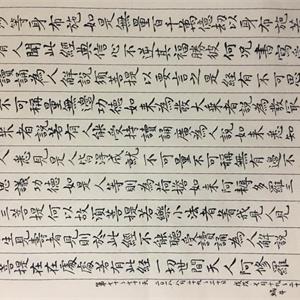 沙等身布施如是無量百千萬億劫以身布施若
有人聞此經典信心不逆其福勝彼何況書寫
讀誦為人解說須菩提以要言之是經有不可思
不可稱量無邊功德如来為發大乘者說為最
乘者說若有人能受持讀誦廣為人說如来悉知
人悉見是人皆得成就不可量不可稱無有邊不
思議功德如是人等則為荷擔如来阿耨多羅三
三菩提何以故須菩提若樂小法者著我見人見
生見壽者見則於此經不能聽受讀誦為人解說
菩提在在處處若有此經一切世間天人阿修羅